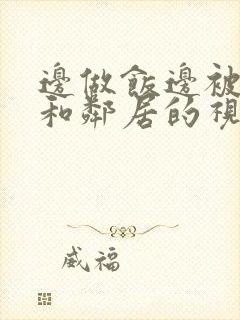 邊做飯邊被
和鄰居的視
威福